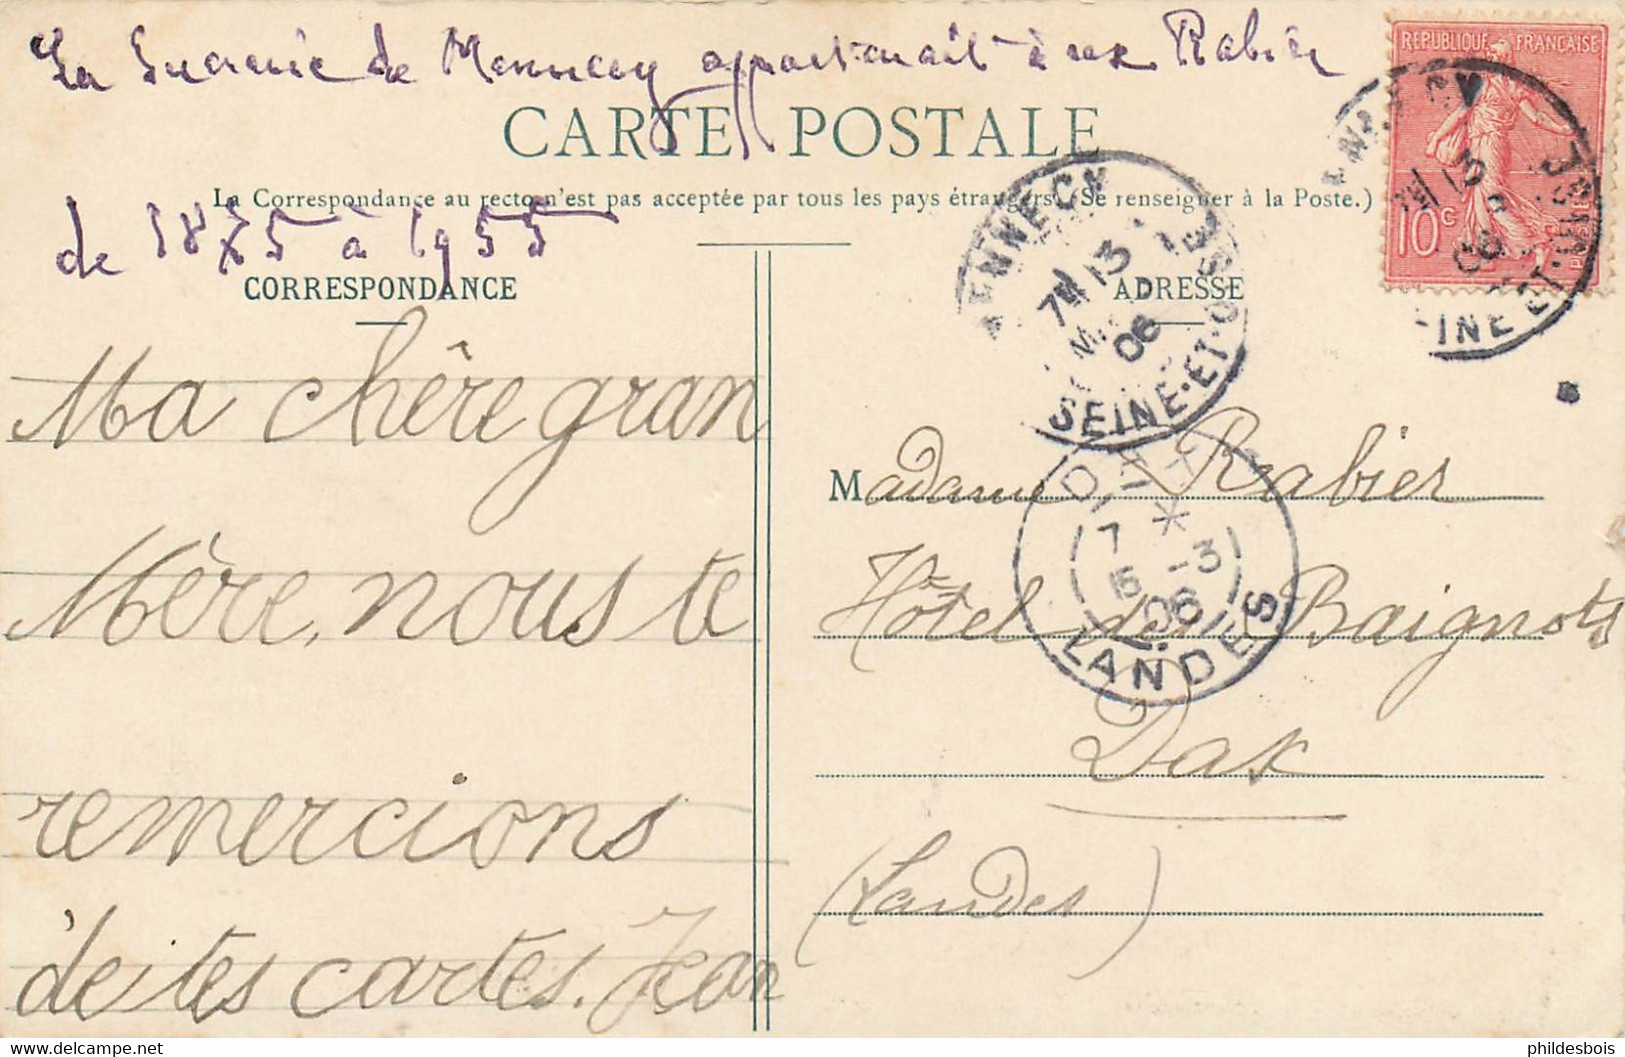 La Sucrerie de Mennecy appartenait aux Rabier
de 1875 à 1955
CARTE POSTALE
La Correspondance au recto n'est pas acceptée par tous les pays étrangers (Se renseigner à la Poste.)
REPUBLIQUE FRANÇAISE
10 c
POSTES
MENNECY
7 13
06
SEINE-ET-OISE
MENNECY
13
06
SEINE-ET-OISE
CORRESPONDANCE
ADRESSE
Ma chère gran
Mère, nous te
remercions
de tes cartes. Jean
Madame Rabier
Hôtel des Baignots
Dax
(Landes)
DAX
7 15 -3
06
LANDES
phildesbois